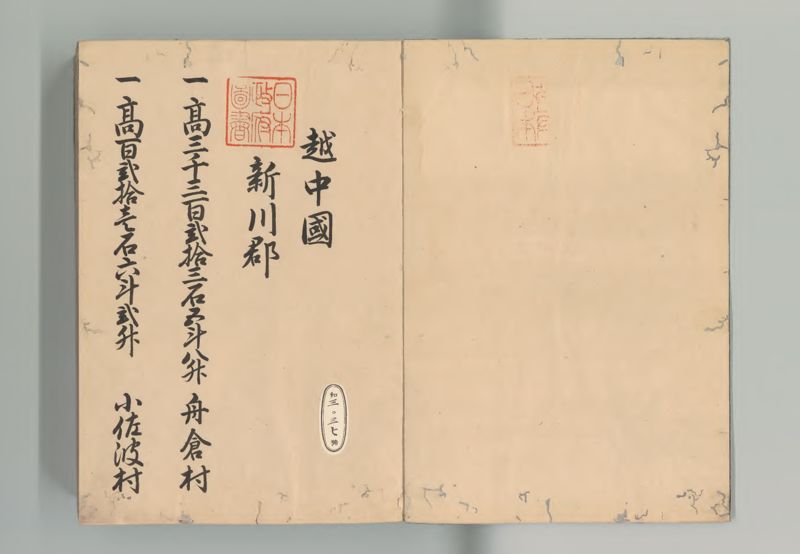 越中國
新川郡
日本
政府
圖書
一高三千三百弐拾三石五斗八升 舟倉村
一高百弐拾壱石六斗弐升 小佐波村
和三〇三七号